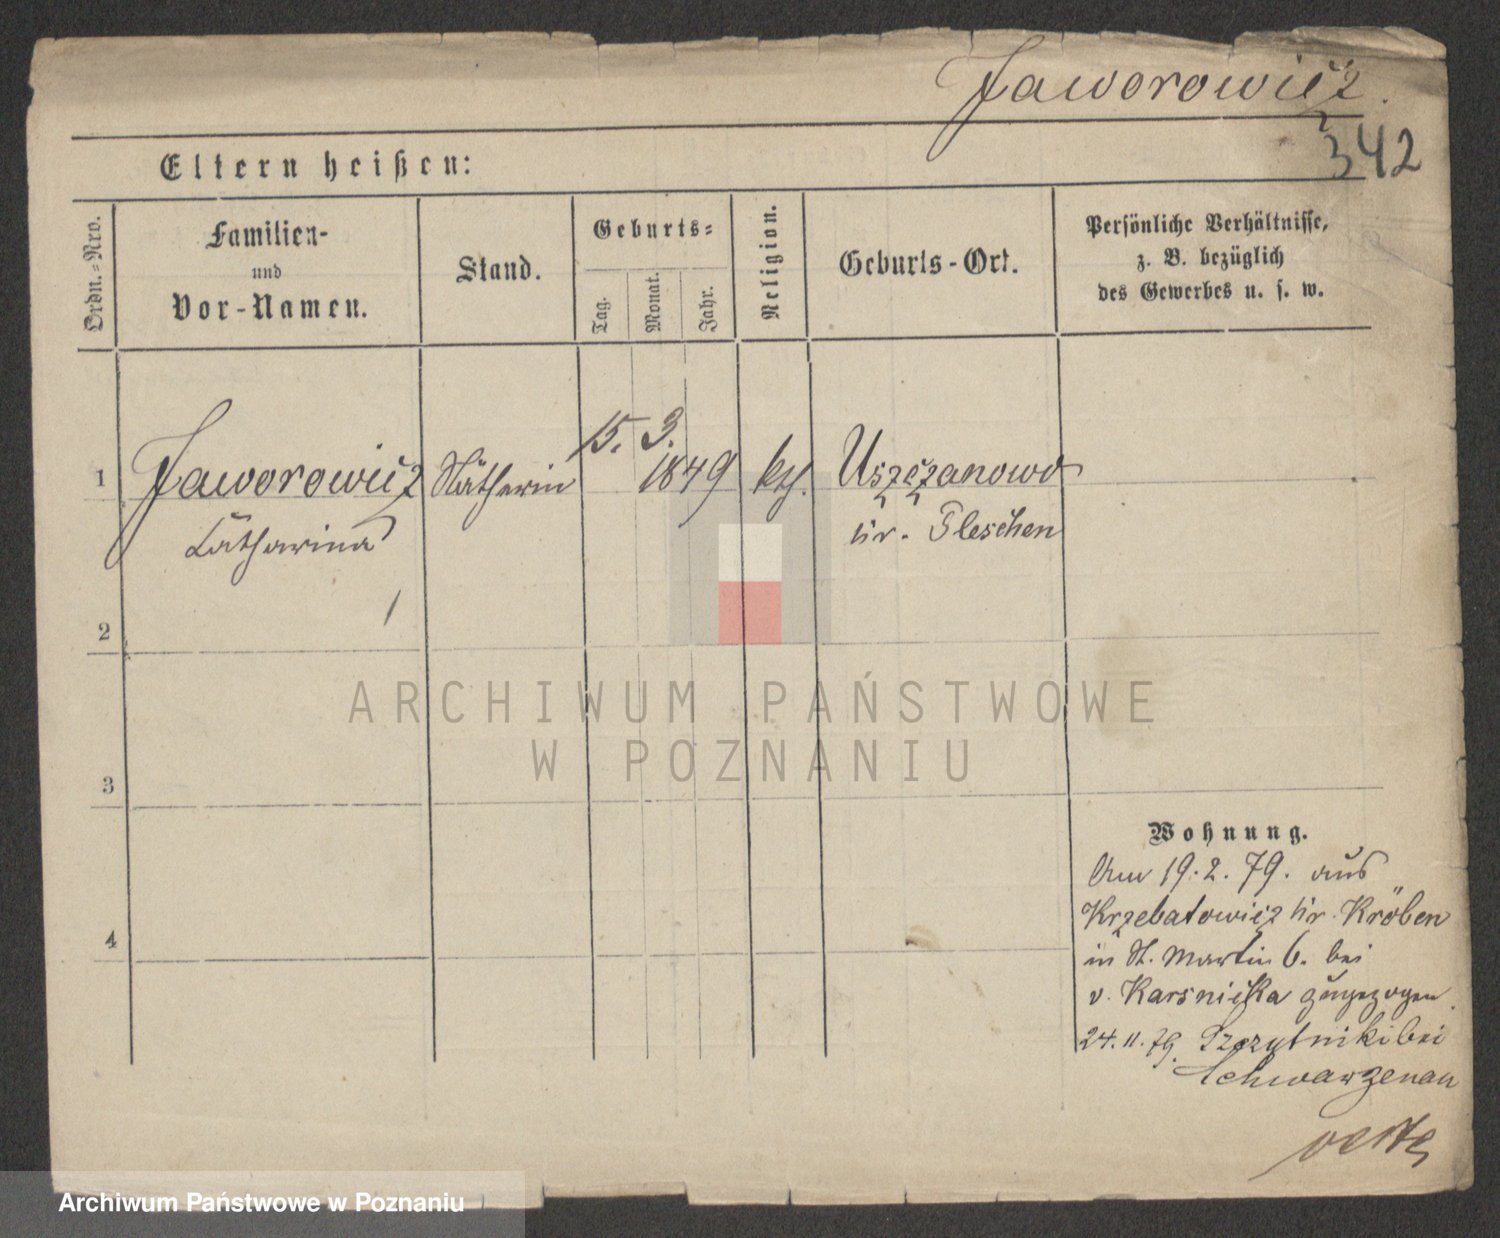 Jaworowicz.
342
Eltern heißen:
Ordn.-Nro.
Familien-
und
Vor-Namen.
Stand.
Geburts-
Tag.
Monat.
Jahr.
Religion.
Geburts-Ort.
Persönliche Verhältnisse,
z. B. bezüglich
des Gewerbes u. s. w.
1
Jaworowicz
Catharina
Nätherin
15. 3.
1849
kth.
Uszczanowo
kr. Pleschen
2
3
4
ARCHIWUM PAŃSTWOWE
W POZNANIU
Wohnung.
Am 19.2.79. aus
Kröben
in St. Martin 6. bei
v. Karsnicka zugezogen
24.11.79. Szczytniki bei
Schwarzenau
Archiwum Państwowe w Poznaniu